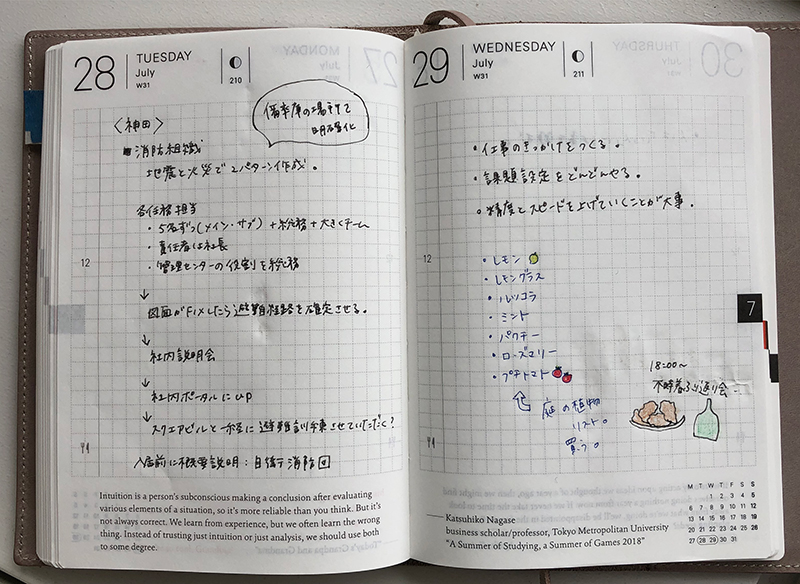 28
TUESDAY
July
W31
210
備蓄庫の場所まで
明確化
〈神田〉
■消防組織
地震と火災で2パターン作成。
各任務担当
・5名ずつ(メイン・サブ)+総務+大きくチーム
・責任者は社長
・管理センターの役割を総務
12
↓
図面がFIXしたら避難経路を確定させる。
↓
社内説明会
↓
社内ポータルにUP
↓
スクエアビルと一緒に避難訓練させていただく?
入居前に概要説明:自衛消防団
Intuition is a person's subconscious making a conclusion after evaluating
various elements of a situation, so it's more reliable than you think. But it's
not always correct. We learn from experience, but we often learn the wrong
thing. Instead of trusting just intuition or just analysis, we should use both
to some degree.
29
WEDNESDAY
July
W31
211
・仕事のきっかけをつくる。
・課題設定をどんどんやる。
・精度とスピードを上げていくことが大事.
12
・レモン
・レモングラス
・ルッコラ
・ミント
・パクチー
・ローズマリー
・プチトマト
庭の植物
リスト。
買う。
18:00~
ふり返り会
7
Katsuhiko Nagase
business scholar/professor, Tokyo Metropolitan University
"A Summer of Studying, a Summer of Games 2018"
M T W T F S S
1 2 3 4 5
6 7 8 9 10 11 12
13 14 15 16 17 18 19
20 21 22 23 24 25 26
27 28 29 30 31